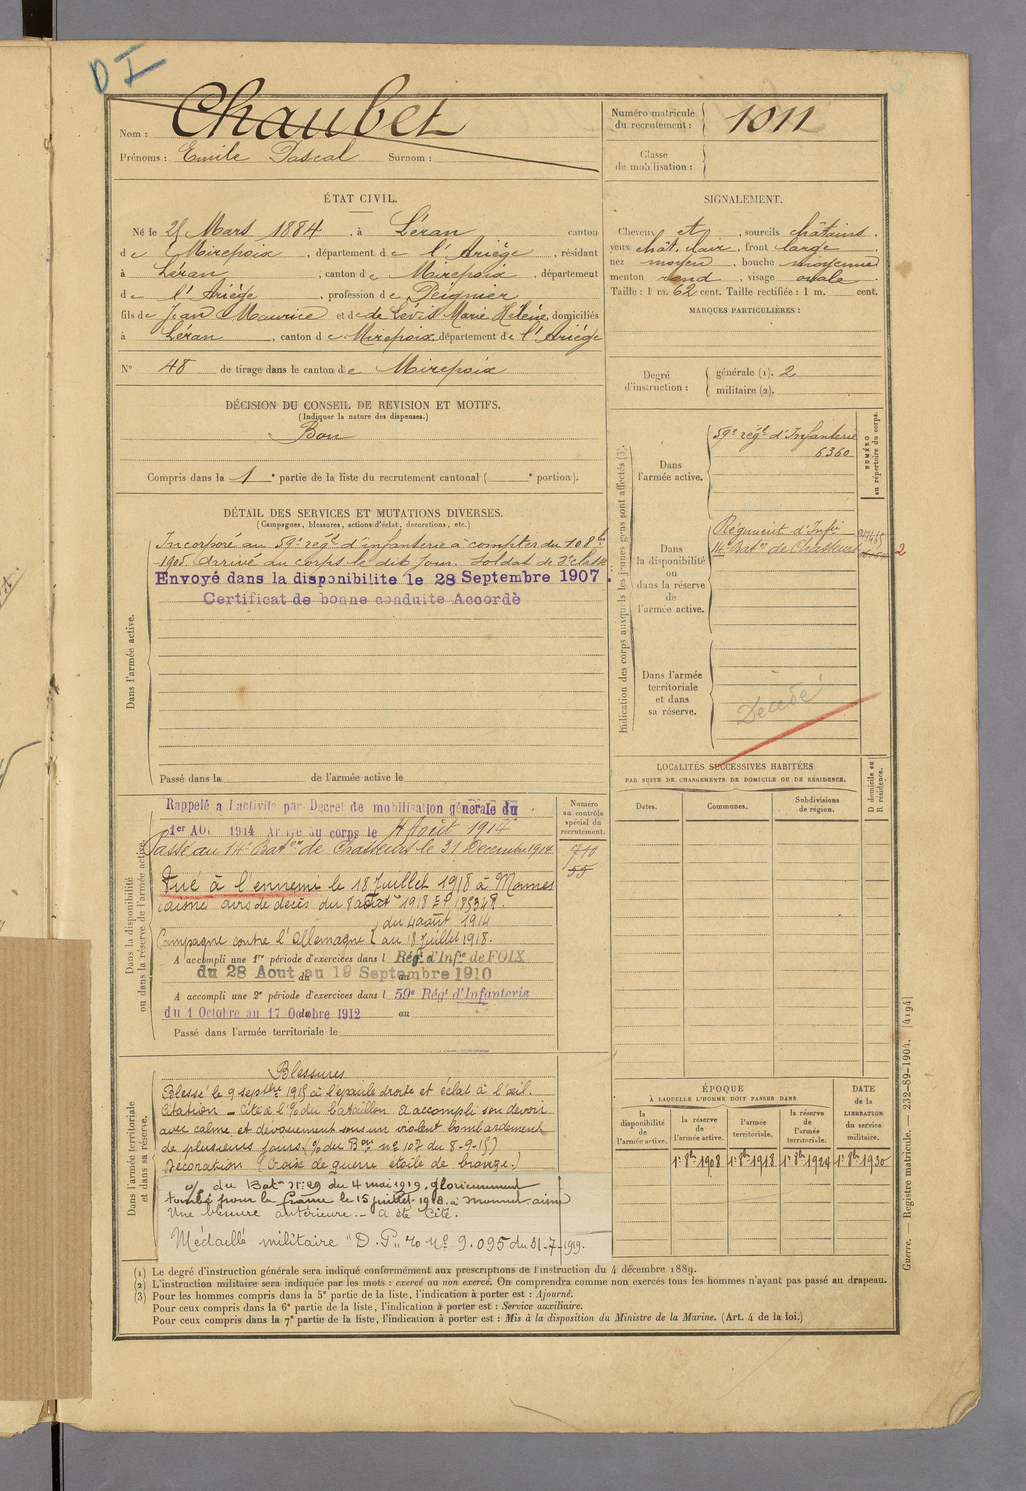 D I
Nom : Chaubet
Prénoms : Emile Pascal Surnom :
Numéro matricule du recrutement : 1011
Classe de mobilisation :
ÉTAT CIVIL.
Né le 21 Mars 1884, à Léran canton
de Mirepoix, département de l'Ariège, résidant
à Léran, canton de Mirepoix, département
de l'Ariège, profession de Peignier
fils de Jean Maurice et de de Lévis Marie Hélène, domiciliés
à Léran, canton de Mirepoix, département de l'Ariège
N° 48 de tirage dans le canton de Mirepoix
SIGNALEMENT.
Cheveux et, sourcils châtains,
yeux chât. clair, front large,
nez moyen, bouche moyenne
menton rond, visage ovale
Taille : 1 m. 62 cent. Taille rectifiée : 1 m. cent.
MARQUES PARTICULIÈRES :
Degré d'instruction : générale (1). 2
militaire (2).
DÉCISION DU CONSEIL DE REVISION ET MOTIFS.
(Indiquer la nature des dispenses.)
Bon
Compris dans la 1e partie de la liste du recrutement cantonal ( e portion).
DÉTAIL DES SERVICES ET MUTATIONS DIVERSES.
(Campagnes, blessures, actions d'éclat, décorations, etc.)
Dans l'armée active.
Incorporé au 59e régt d'infanterie à compter du 10 8bre
1905 Arrivé au corps le dit jour. Soldat de 2e classe
Envoyé dans la disponibilite le 28 Septembre 1907.
Certificat de bonne conduite Accordè
Passé dans la de l'armée active le
Indication des corps auxquels les jeunes gens sont affectés (3).
NUMÉRO au répertoire du corps.
Dans l'armée active.
59e régt d'Infanterie
6360
Dans la disponibilité ou dans la réserve de l'armée active.
Régiment d'Infie
14e Baton de Chasseurs
2
Dans l'armée territoriale et dans sa réserve.
Décédé
Dans la disponibilité ou dans la réserve de l'armée active.
Numéro au contrôle spécial du recrutement.
Rappelé a l'activité par Decret de mobilisation générale du
1er AOUT 1914 Arrivé au corps le 4 Août 1914
Passé au 14e Baton de Chasseurs le 31 Decembre 1914
Tué à l'ennemi le 18 Juillet 1918 à Monnes
(aisne) avis de décès du 8 août 1918
du 4 août 1914
Campagne contre l'Allemagne { au 18 Juillet 1918.
A accompli une 1re période d'exercices dans l Régt d'Infie de FOIX
du 28 Aout au 19 Septembre 1910
A accompli une 2e période d'exercices dans l 59e Régt d'Infanterie
du 1 Octobre au 17 Octobre 1912 au
Passé dans l'armée territoriale le
LOCALITÉS SUCCESSIVES HABITÉES
PAR SUITE DE CHANGEMENTS DE DOMICILE OU DE RÉSIDENCE.
D domicile ou R résidence.
Dates. Communes. Subdivisions de région.
Dans l'armée territoriale et dans sa réserve.
Blessures
Blessé le 9 septbre 1915 à l'épaule droite et éclat à l'œil.
Citation – Cité à l'% du bataillon a accompli son devoir
avec calme et dévouement sous un violent bombardement
de plusieurs jours (% du Bon n° 107 du 8-9-15)
Décoration (Croix de guerre étoile de bronze.)
% du Baton n° 29 du 4 mai 1919. glorieusement
tombé pour la france le 15 juillet 1918. à Monnes. aisne
Une blessure antérieure. – a été cité.
Médaille militaire "D.P." Jo n° 9.095 du 31-7-1919.
ÉPOQUE
À LAQUELLE L'HOMME DOIT PASSER DANS
DATE de la LIBÉRATION du service militaire.
la disponibilité de l'armée active. la réserve de l'armée active. l'armée territoriale. la réserve de l'armée territoriale.
1er 8bre 1908 1er 8bre 1918 1er 8bre 1924 1er 8bre 1930
(1) Le degré d'instruction générale sera indiqué conformément aux prescriptions de l'instruction du 4 décembre 1889.
(2) L'instruction militaire sera indiquée par les mots : exercé ou non exercé. On comprendra comme non exercés tous les hommes n'ayant pas passé au drapeau.
(3) Pour les hommes compris dans la 5e partie de la liste, l'indication à porter est : Ajourné.
Pour ceux compris dans la 6e partie de la liste, l'indication à porter est : Service auxiliaire.
Pour ceux compris dans la 7e partie de la liste, l'indication à porter est : Mis à la disposition du Ministre de la Marine. (Art. 4 de la loi.)
Guerre. — Registre matricule. — 232-89-1904. [4194]